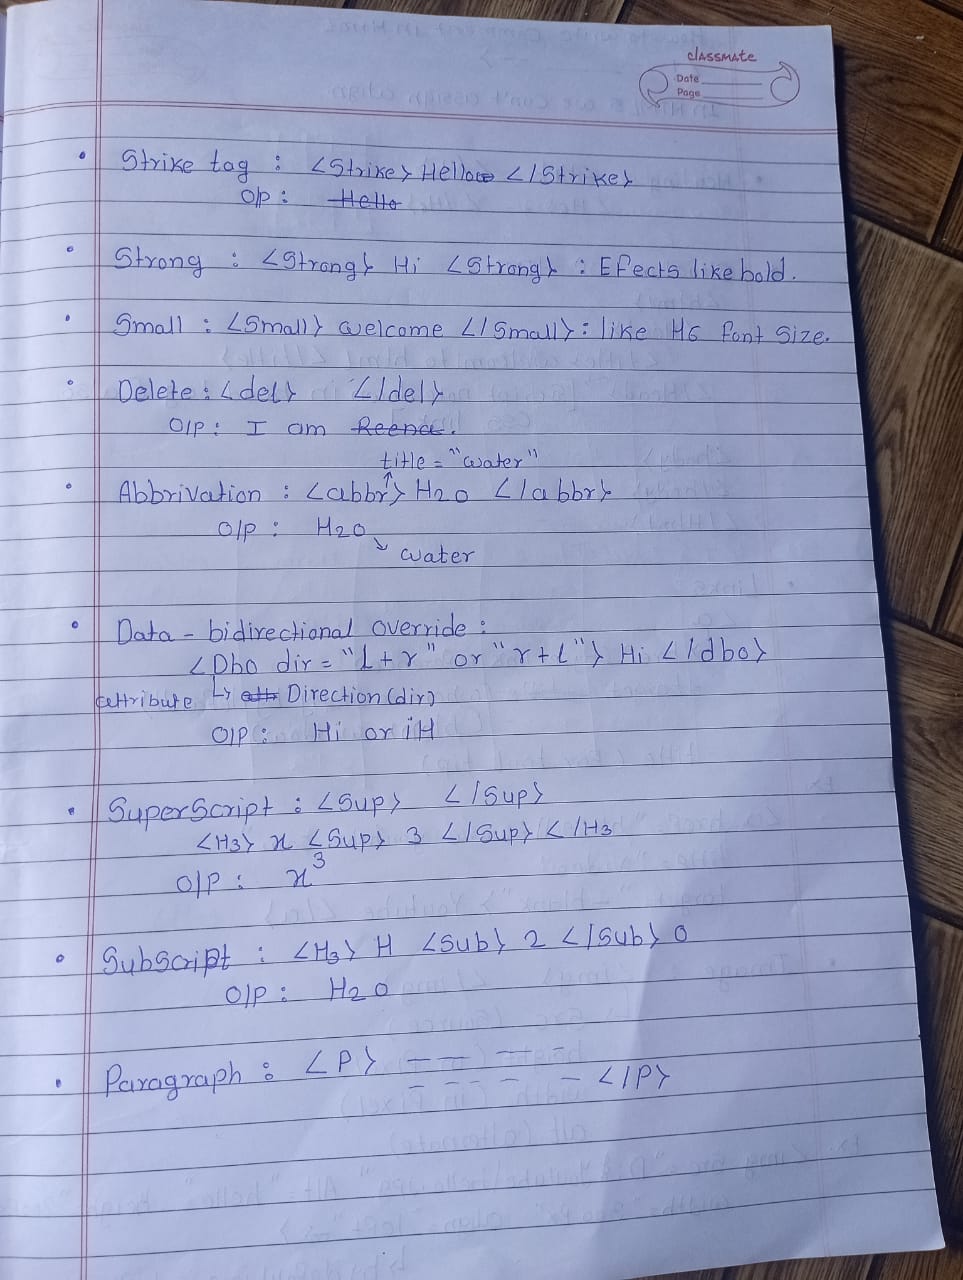 classmate
Date
Page
• Strike tag : <Strike> Hello </Strike>
O/p : Hello
• Strong : <Strong> Hi <Strong> : Effects like bold.
• Small : <Small> welcome </Small> : like H6 font size.
• Delete : <del> </del>
O/P : I am Reena.
title = "water"
• Abbrivation : <abbr> H2O </abbr>
O/P : H2O
water
• Data - bidirectional override :
<Dbo dir = "l+r" or "r+l"> Hi </dbo>
attribute ↳ Direction (dir)
O/P : Hi or iH
• SuperScript : <Sup> </Sup>
<H3> x <Sup> 3 </Sup> </H3
O/P : x³
• SubScript : <H3> H <Sub> 2 </Sub> O
O/P : H2O
• Paragraph : <P> — — — —
— — — — — </P>